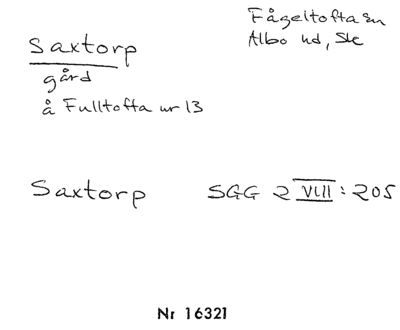 Fågeltofta sn
Albo hd, Sk
Saxtorp
gård
å Fulltofta nr 13
Saxtorp SGG 2 VIII : 205
Nr 16321